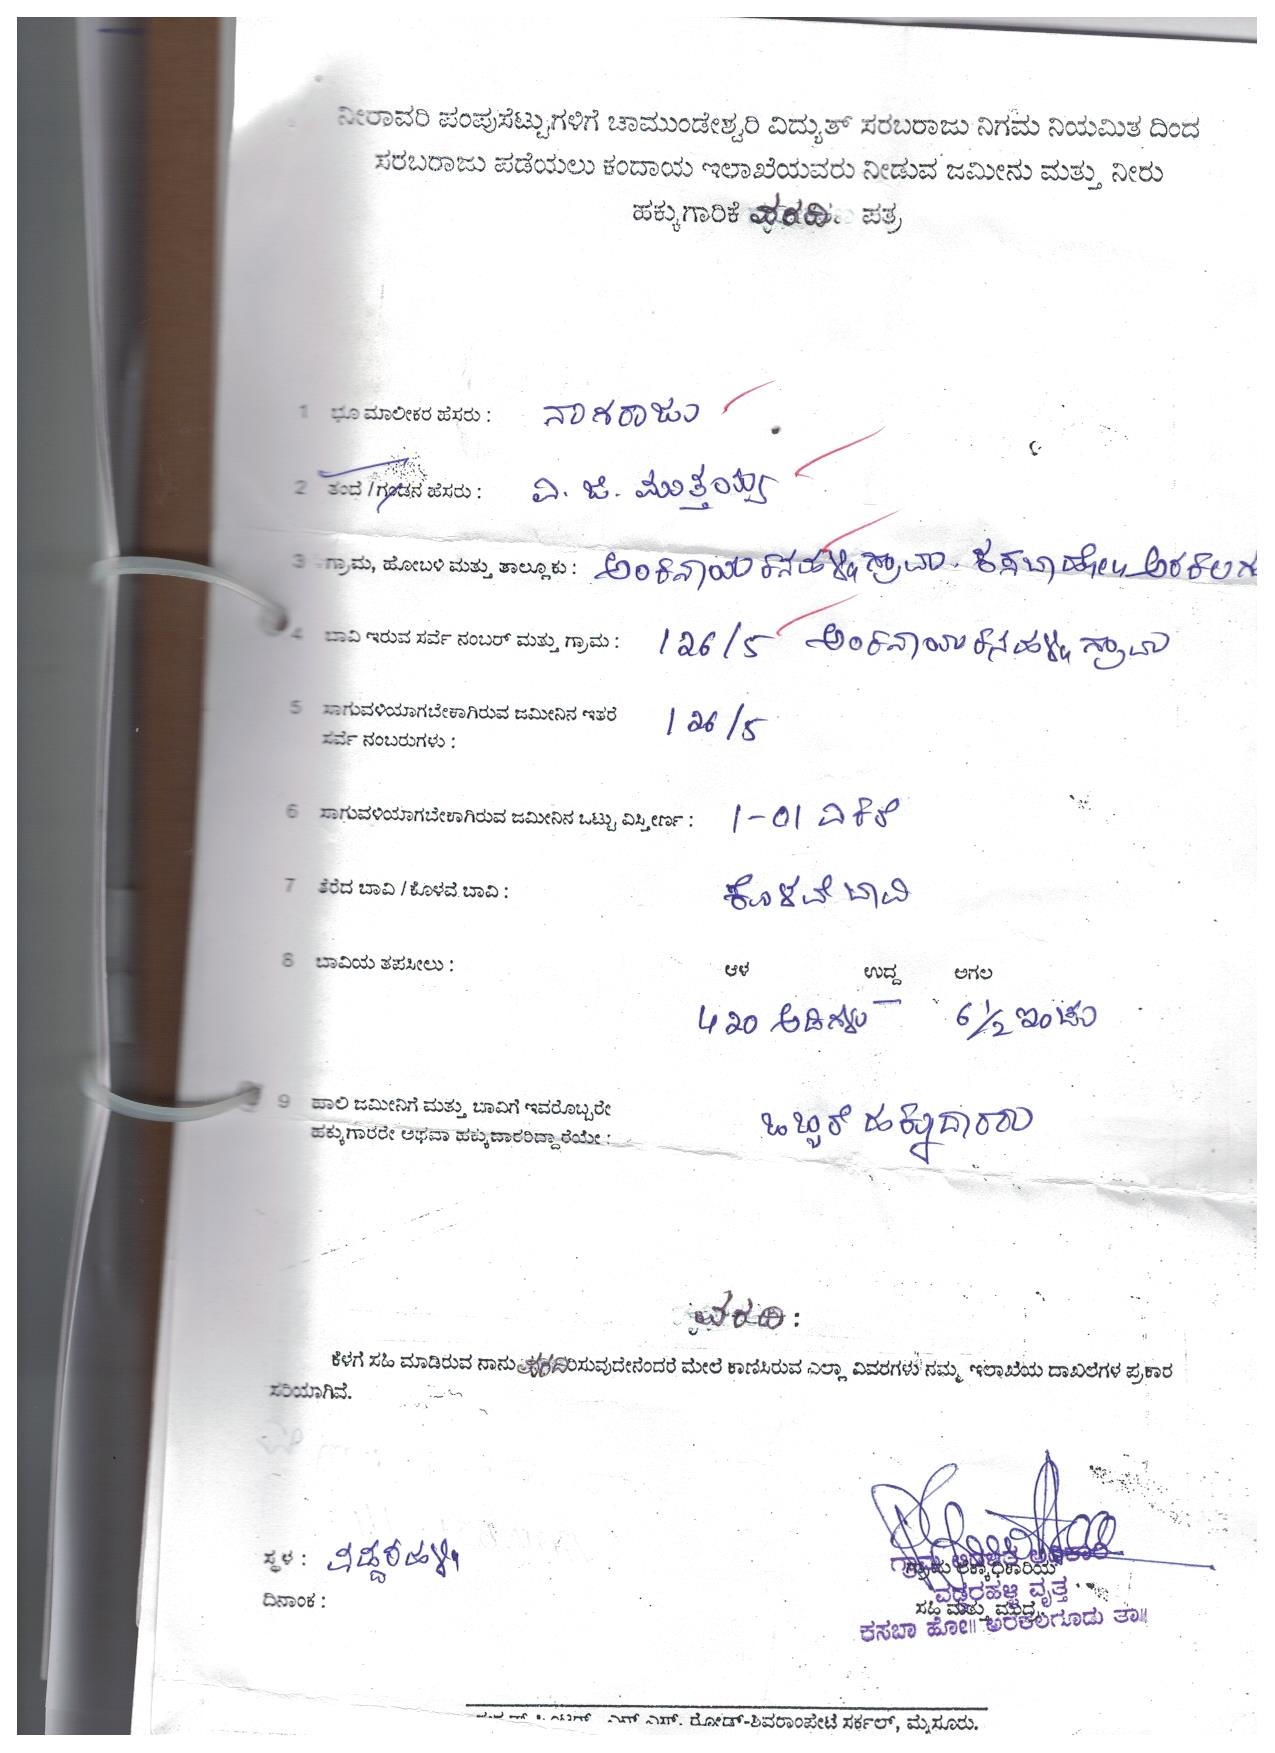 ನೀರಾವರಿ ಪಂಪುಸೆಟ್ಟುಗಳಿಗೆ ಚಾಮುಂಡೇಶ್ವರಿ ವಿದ್ಯುತ್ ಸರಬರಾಜು ನಿಗಮ ನಿಯಮಿತ ದಿಂದ
ಸರಬರಾಜು ಪಡೆಯಲು ಕಂದಾಯ ಇಲಾಖೆಯವರು ನೀಡುವ ಜಮೀನು ಮತ್ತು ನೀರು
ಹಕ್ಕುಗಾರಿಕೆ ವರದಿ ಪತ್ರ
1 ಭೂ ಮಾಲೀಕರ ಹೆಸರು : ನಾಗರಾಜು
2 ತಂದೆ / ಗಂಡನ ಹೆಸರು : ವಿ. ಜೆ. ಮುತ್ತಯ್ಯ
3 ಗ್ರಾಮ, ಹೋಬಳಿ ಮತ್ತು ತಾಲ್ಲೂಕು : ಅಂಕನಾಯಕನಹಳ್ಳಿ ಗ್ರಾಮ. ಕಸಬಾ ಹೋ॥ ಅರಕಲಗೂ
4 ಬಾವಿ ಇರುವ ಸರ್ವೆ ನಂಬರ್ ಮತ್ತು ಗ್ರಾಮ : 126/5 ಅಂಕನಾಯಕನಹಳ್ಳಿ ಗ್ರಾಮ
5 ಸಾಗುವಳಿಯಾಗಬೇಕಾಗಿರುವ ಜಮೀನಿನ ಇತರೆ 126/5
ಸರ್ವೆ ನಂಬರುಗಳು :
6 ಸಾಗುವಳಿಯಾಗಬೇಕಾಗಿರುವ ಜಮೀನಿನ ಒಟ್ಟು ವಿಸ್ತೀರ್ಣ : 1-01 ಎಕರೆ
7 ತೆರೆದ ಬಾವಿ / ಕೊಳವೆ ಬಾವಿ : ಕೊಳವೆ ಬಾವಿ
8 ಬಾವಿಯ ತಪಸೀಲು : ಆಳ ಉದ್ದ ಅಗಲ
420 ಅಡಿಗಳು — 6 1/2 ಇಂಚು
9 ಹಾಲಿ ಜಮೀನಿಗೆ ಮತ್ತು ಬಾವಿಗೆ ಇವರೊಬ್ಬರೇ
ಹಕ್ಕುಗಾರರೇ ಅಥವಾ ಹಕ್ಕುದಾರರಿದ್ದಾರೆಯೇ : ಒಬ್ಬರೆ ಹಕ್ಕುದಾರರು
ವರದಿ :
ಕೆಳಗೆ ಸಹಿ ಮಾಡಿರುವ ನಾನು ವರದಿರಿಸುವುದೇನೆಂದರೆ ಮೇಲೆ ಕಾಣಿಸಿರುವ ಎಲ್ಲಾ ವಿವರಗಳು ನಮ್ಮ ಇಲಾಖೆಯ ದಾಖಲೆಗಳ ಪ್ರಕಾರ
ಸರಿಯಾಗಿವೆ.
ಸ್ಥಳ : ವಡ್ಡರಹಳ್ಳಿ
ಗ್ರಾಮ ಆಡಳಿತ ಅಧಿಕಾರಿ
ಗ್ರಾಮ ಲೆಕ್ಕಾಧಿಕಾರಿಯ
ವಡ್ಡರಹಳ್ಳಿ ವೃತ್ತ
ದಿನಾಂಕ :
ಸಹಿ ಮತ್ತು ಮುದ್ರೆ
ಕಸಬಾ ಹೋ॥ ಅರಕಲಗೂಡು ತಾ॥
ರೋಡ್-ಶಿವರಾಂಪೇಟೆ ಸರ್ಕಲ್, ಮೈಸೂರು.